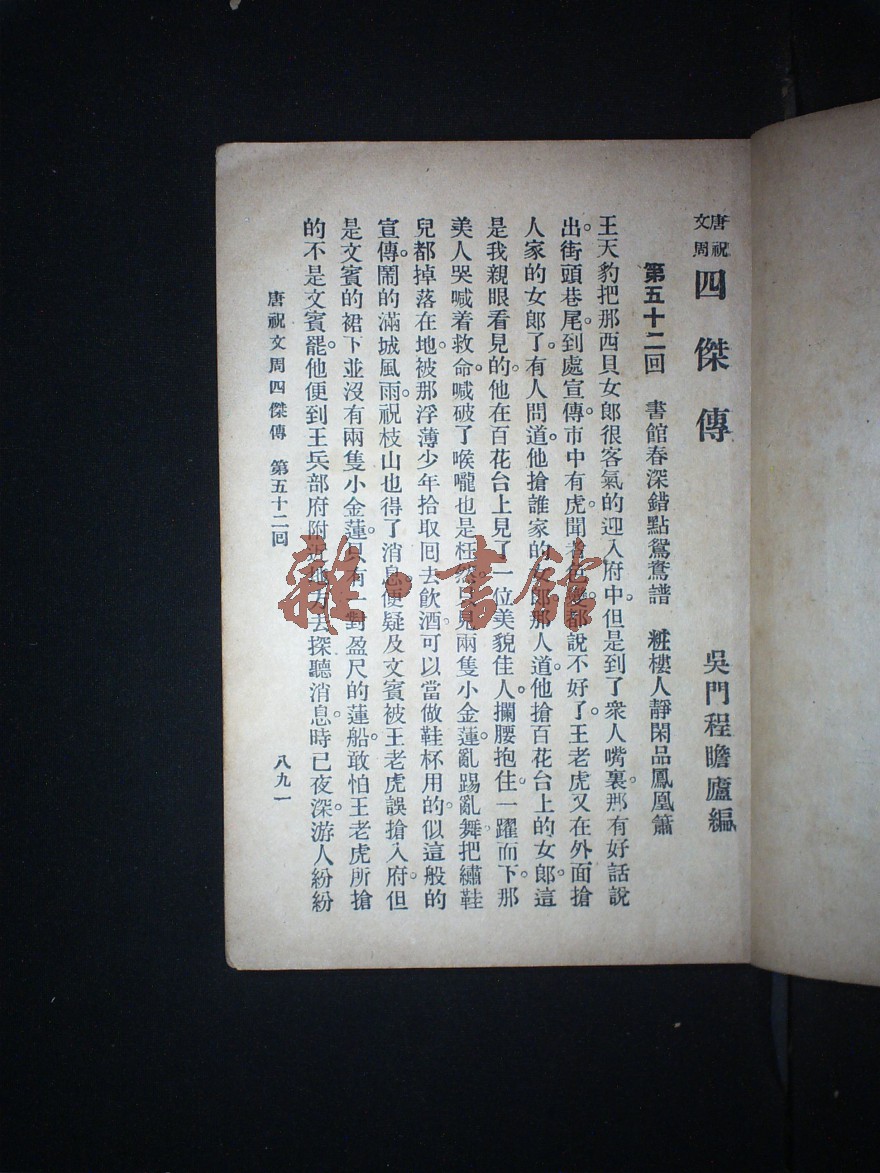 唐祝文周四傑傳
吳門程瞻廬編
第五十二回 書館春深錯點鴛鴦譜 粧樓人靜閑品鳳凰簫
王天豹把那西貝女郎很客氣的迎入府中。但是到了衆人嘴裏那有好話說
出。街頭巷尾。到處宣傳。市中有虎。聞者色變。都說不好了。王老虎又在外面搶
人家的女郎了。有人問道。他搶誰家的女郎。那人道。他搶百花台上的女郎。這
是我親眼看見的。他在百花台上見了一位美貌佳人。攔腰抱住。一躍而下。那
美人哭喊着救命。喊破了喉嚨也是枉然。只見兩隻小金蓮亂踢亂舞。把繡鞋
兒都掉落在地。被那浮薄少年拾取回去飲酒。可以當做鞋杯用的。似這般的
宣傳。鬧的滿城風雨。祝枝山也得了消息。便疑及文賓被王老虎誤搶入府。但
是文賓的裙下並沒有兩隻小金蓮。只有一對盈尺的蓮船。敢怕王老虎所搶
的不是文賓罷。他便到王兵部府附近地方去探聽消息。時已夜深。游人紛紛
唐祝文周四傑傳 第五十二回 八九一
雜·書館